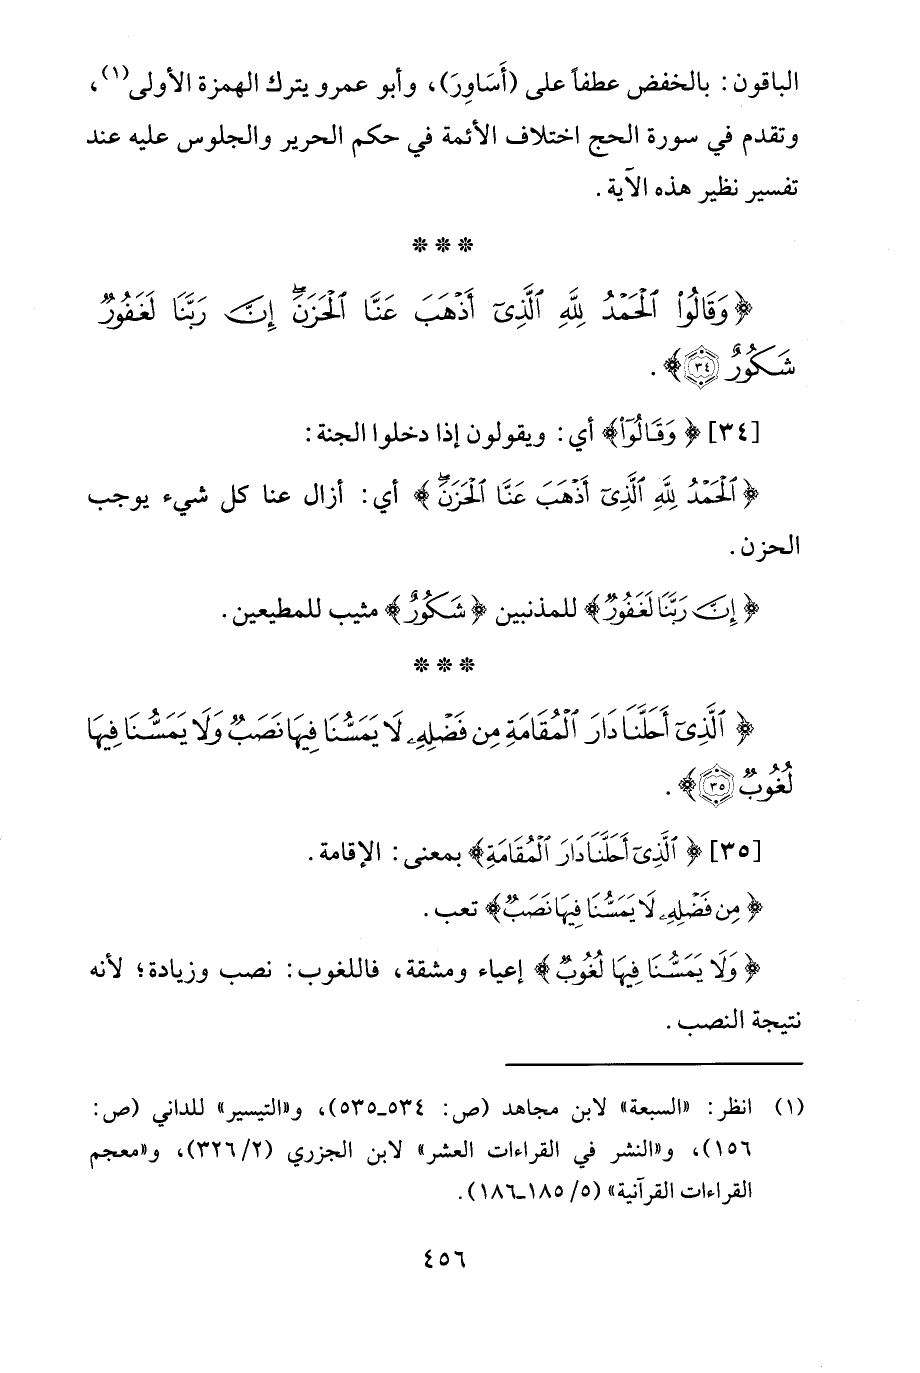 الباقون: بالخفض عطفاً على (أَسَاوِرَ)، وأبو عمرو يترك الهمزة الأولى(١)،
وتقدم في سورة الحج اختلاف الأئمة في حكم الحرير والجلوس عليه عند
تفسير نظير هذه الآية.
***
﴿وَقَالُوا۟ ٱلْحَمْدُ لِلَّهِ ٱلَّذِىٓ أَذْهَبَ عَنَّا ٱلْحَزَنَ ۖ إِنَّ رَبَّنَا لَغَفُورٌ
شَكُورٌ ٣٤﴾.
[٣٤] ﴿وَقَالُوا۟﴾ أي: ويقولون إذا دخلوا الجنة:
﴿ٱلْحَمْدُ لِلَّهِ ٱلَّذِىٓ أَذْهَبَ عَنَّا ٱلْحَزَنَ ۖ﴾ أي: أزال عنا كل شيء يوجب
الحزن.
﴿إِنَّ رَبَّنَا لَغَفُورٌ﴾ للمذنبين ﴿شَكُورٌ﴾ مثيب للمطيعين.
***
﴿ٱلَّذِىٓ أَحَلَّنَا دَارَ ٱلْمُقَامَةِ مِن فَضْلِهِۦ لَا يَمَسُّنَا فِيهَا نَصَبٌ وَلَا يَمَسُّنَا فِيهَا
لُغُوبٌ ٣٥﴾.
[٣٥] ﴿ٱلَّذِىٓ أَحَلَّنَا دَارَ ٱلْمُقَامَةِ﴾ بمعنى: الإقامة.
﴿مِن فَضْلِهِۦ لَا يَمَسُّنَا فِيهَا نَصَبٌ﴾ تعب.
﴿وَلَا يَمَسُّنَا فِيهَا لُغُوبٌ﴾ إعياء ومشقة، فاللغوب: نصب وزيادة؛ لأنه
نتيجة النصب.
(١) انظر: «السبعة» لابن مجاهد (ص: ٥٣٤ـ٥٣٥)، و«التيسير» للداني (ص:
١٥٦)، و«النشر في القراءات العشر» لابن الجزري (٢/ ٣٢٦)، و«معجم
القراءات القرآنية» (٥/ ١٨٥ـ١٨٦).
٤٥٦